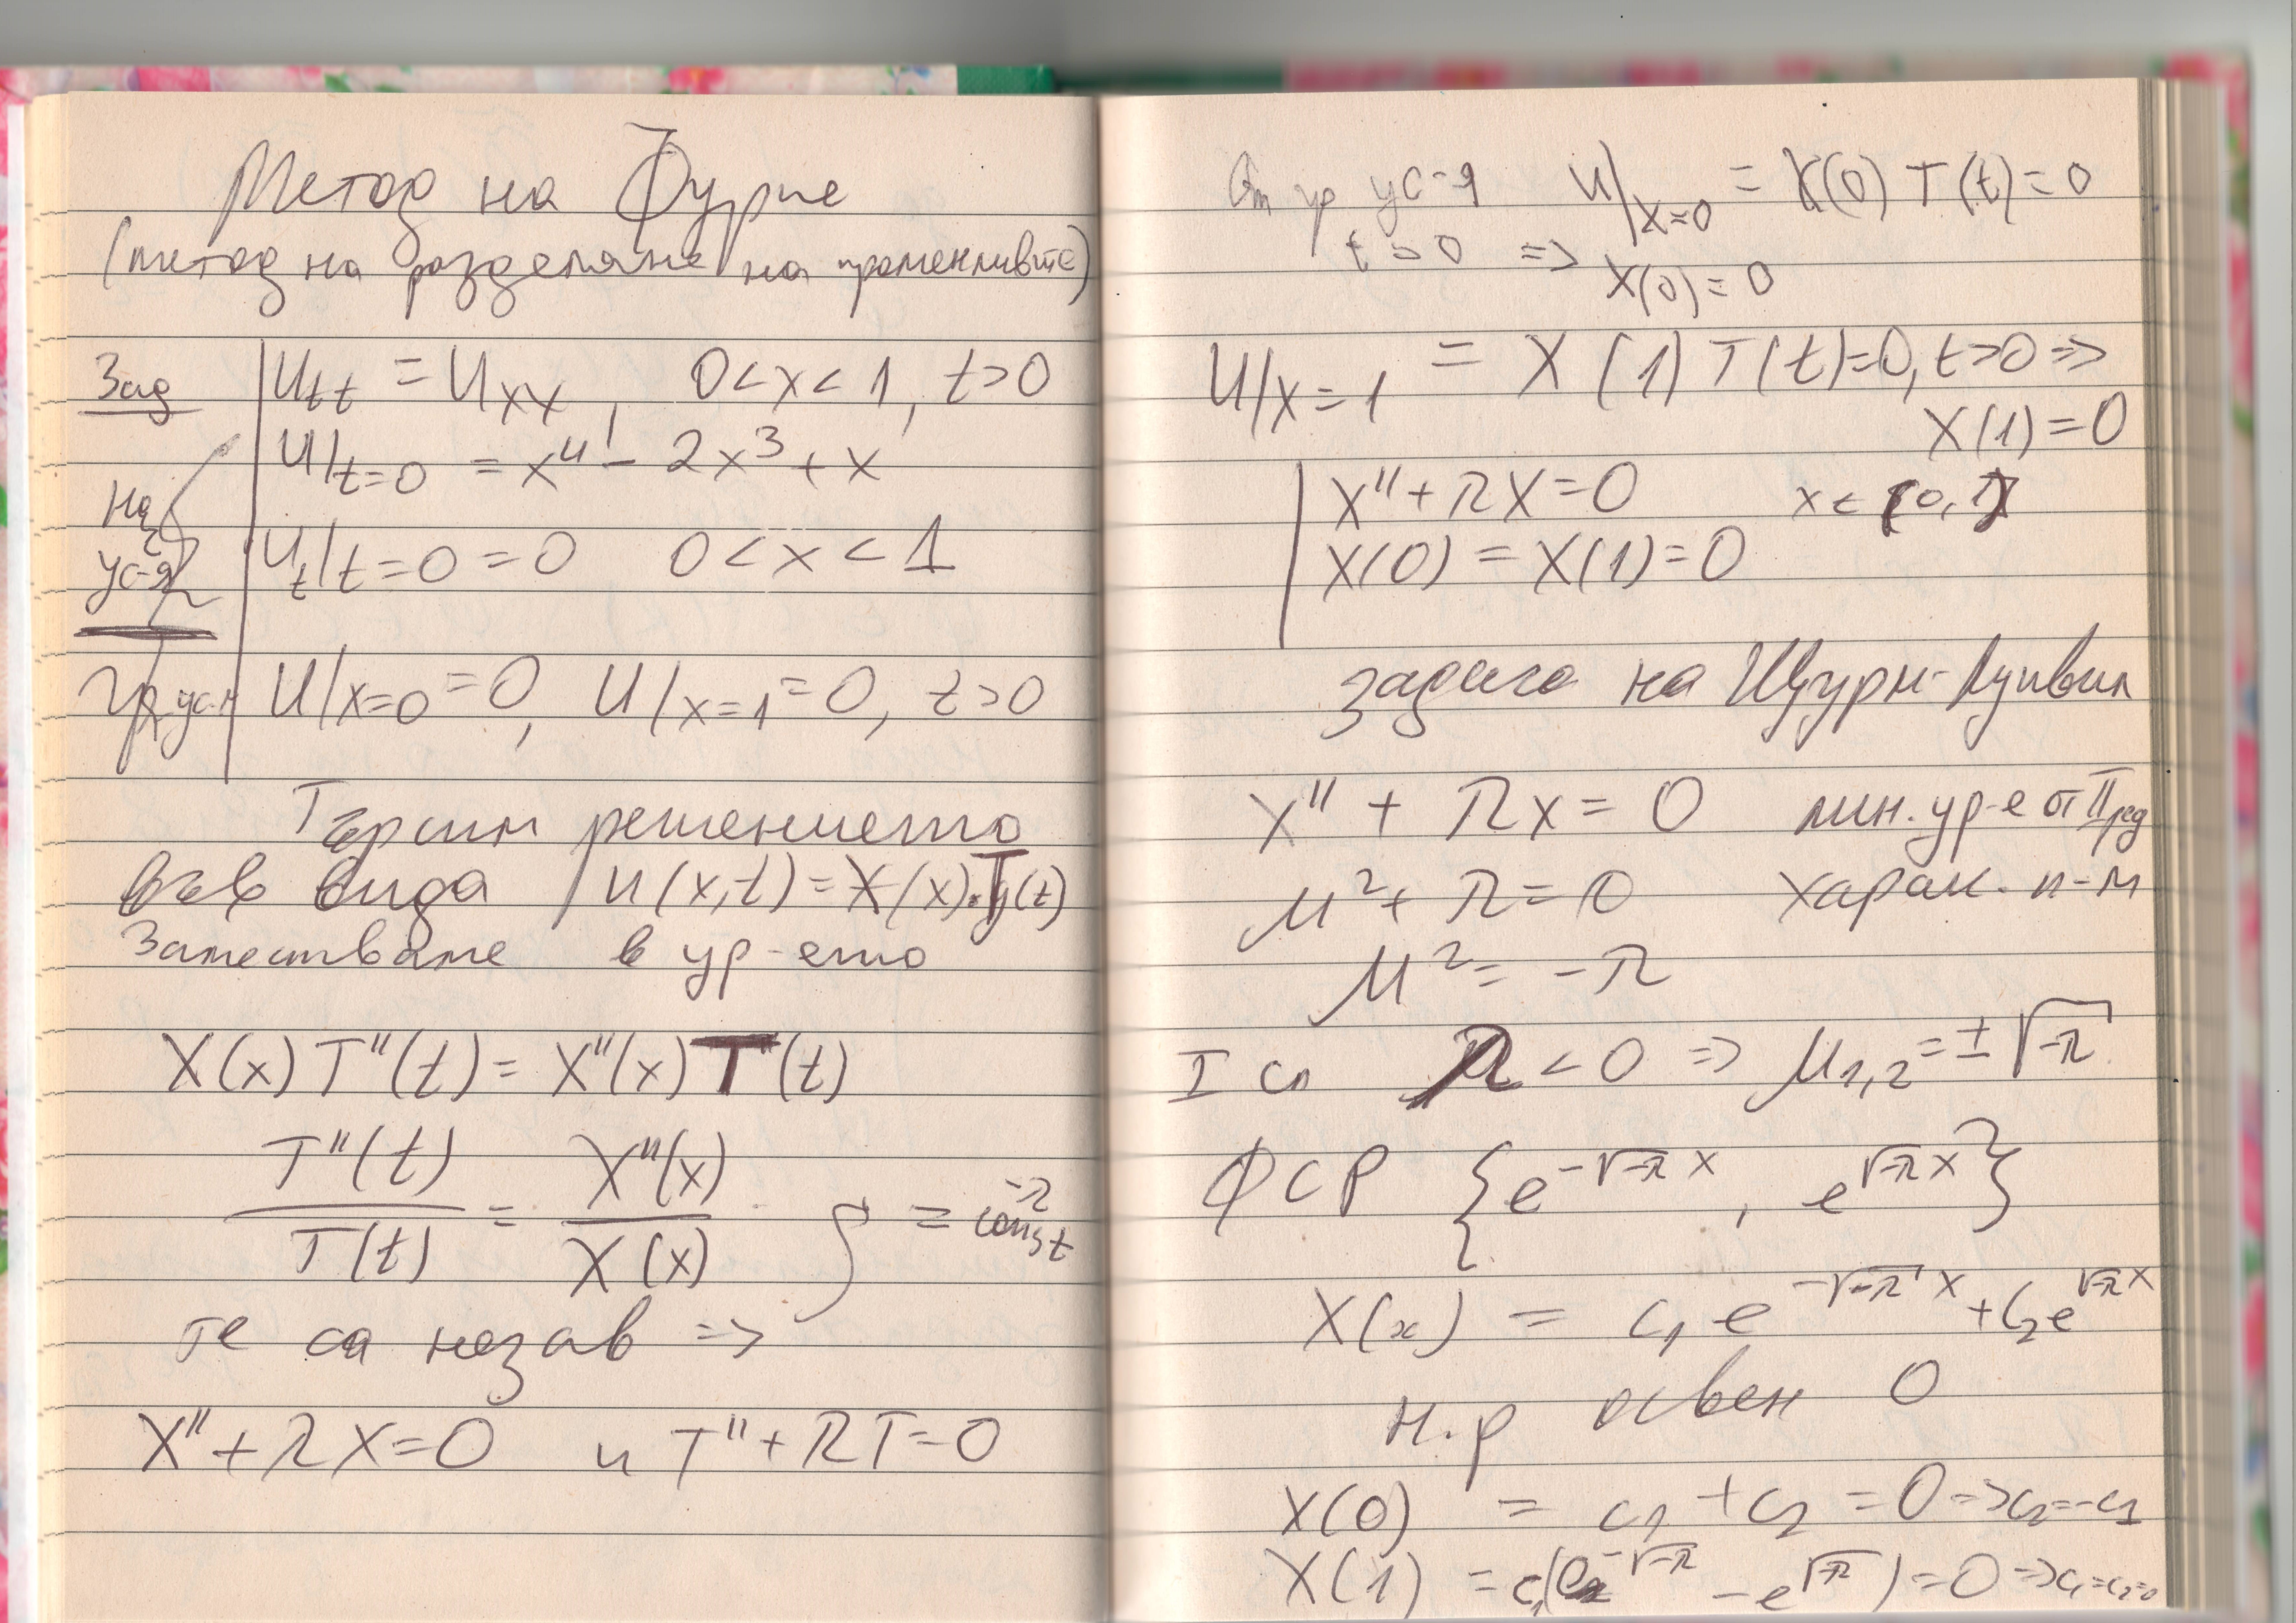 Метод на Фурие
(метод на разделяне на променливите)
Зад
u_tt = u_xx, 0<x<1, t>0
u|t=0 = x⁴ - 2x³ + x
Нач
ус-я
u_t|t=0 = 0 0<x<1
Гр. усл u|x=0 = 0, u|x=1 = 0, t>0
Търсим решението
във вида u(x,t) = X(x).T(t)
Заместваме в ур-ето
X(x) T''(t) = X''(x) T(t)
T''(t)/T(t) = X''(x)/X(x) = -λ const
те са незав =>
X'' + λX = 0 и T'' + λT = 0
От гр ус-я u|x=0 = X(0) T(t) = 0
t>0 => X(0) = 0
u|x=1 = X(1) T(t) = 0, t>0 =>
X(1) = 0
X'' + λX = 0 x ∈ [0,1]
X(0) = X(1) = 0
задача на Щурм-Лиувил
X'' + λX = 0 лин. ур-е от II ред
μ² + λ = 0 харак. п-м
μ² = -λ
I сл λ < 0 => μ1,2 = ±√-λ
ФСР {e^-√-λ x, e^√-λ x}
X(x) = c₁ e^-√-λ x + c₂ e^√-λ x
н.р освен 0
X(0) = c₁ + c₂ = 0 => c₂ = -c₁
X(1) = c₁(e^-√-λ - e^√-λ) = 0 => c₁ = c₂ = 0